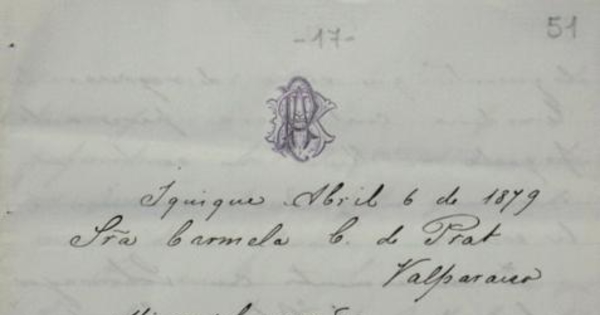 -17-
51
Iquique Abril 6 de 1879
Sr̃a Carmela C. de Prat
Valparaiso